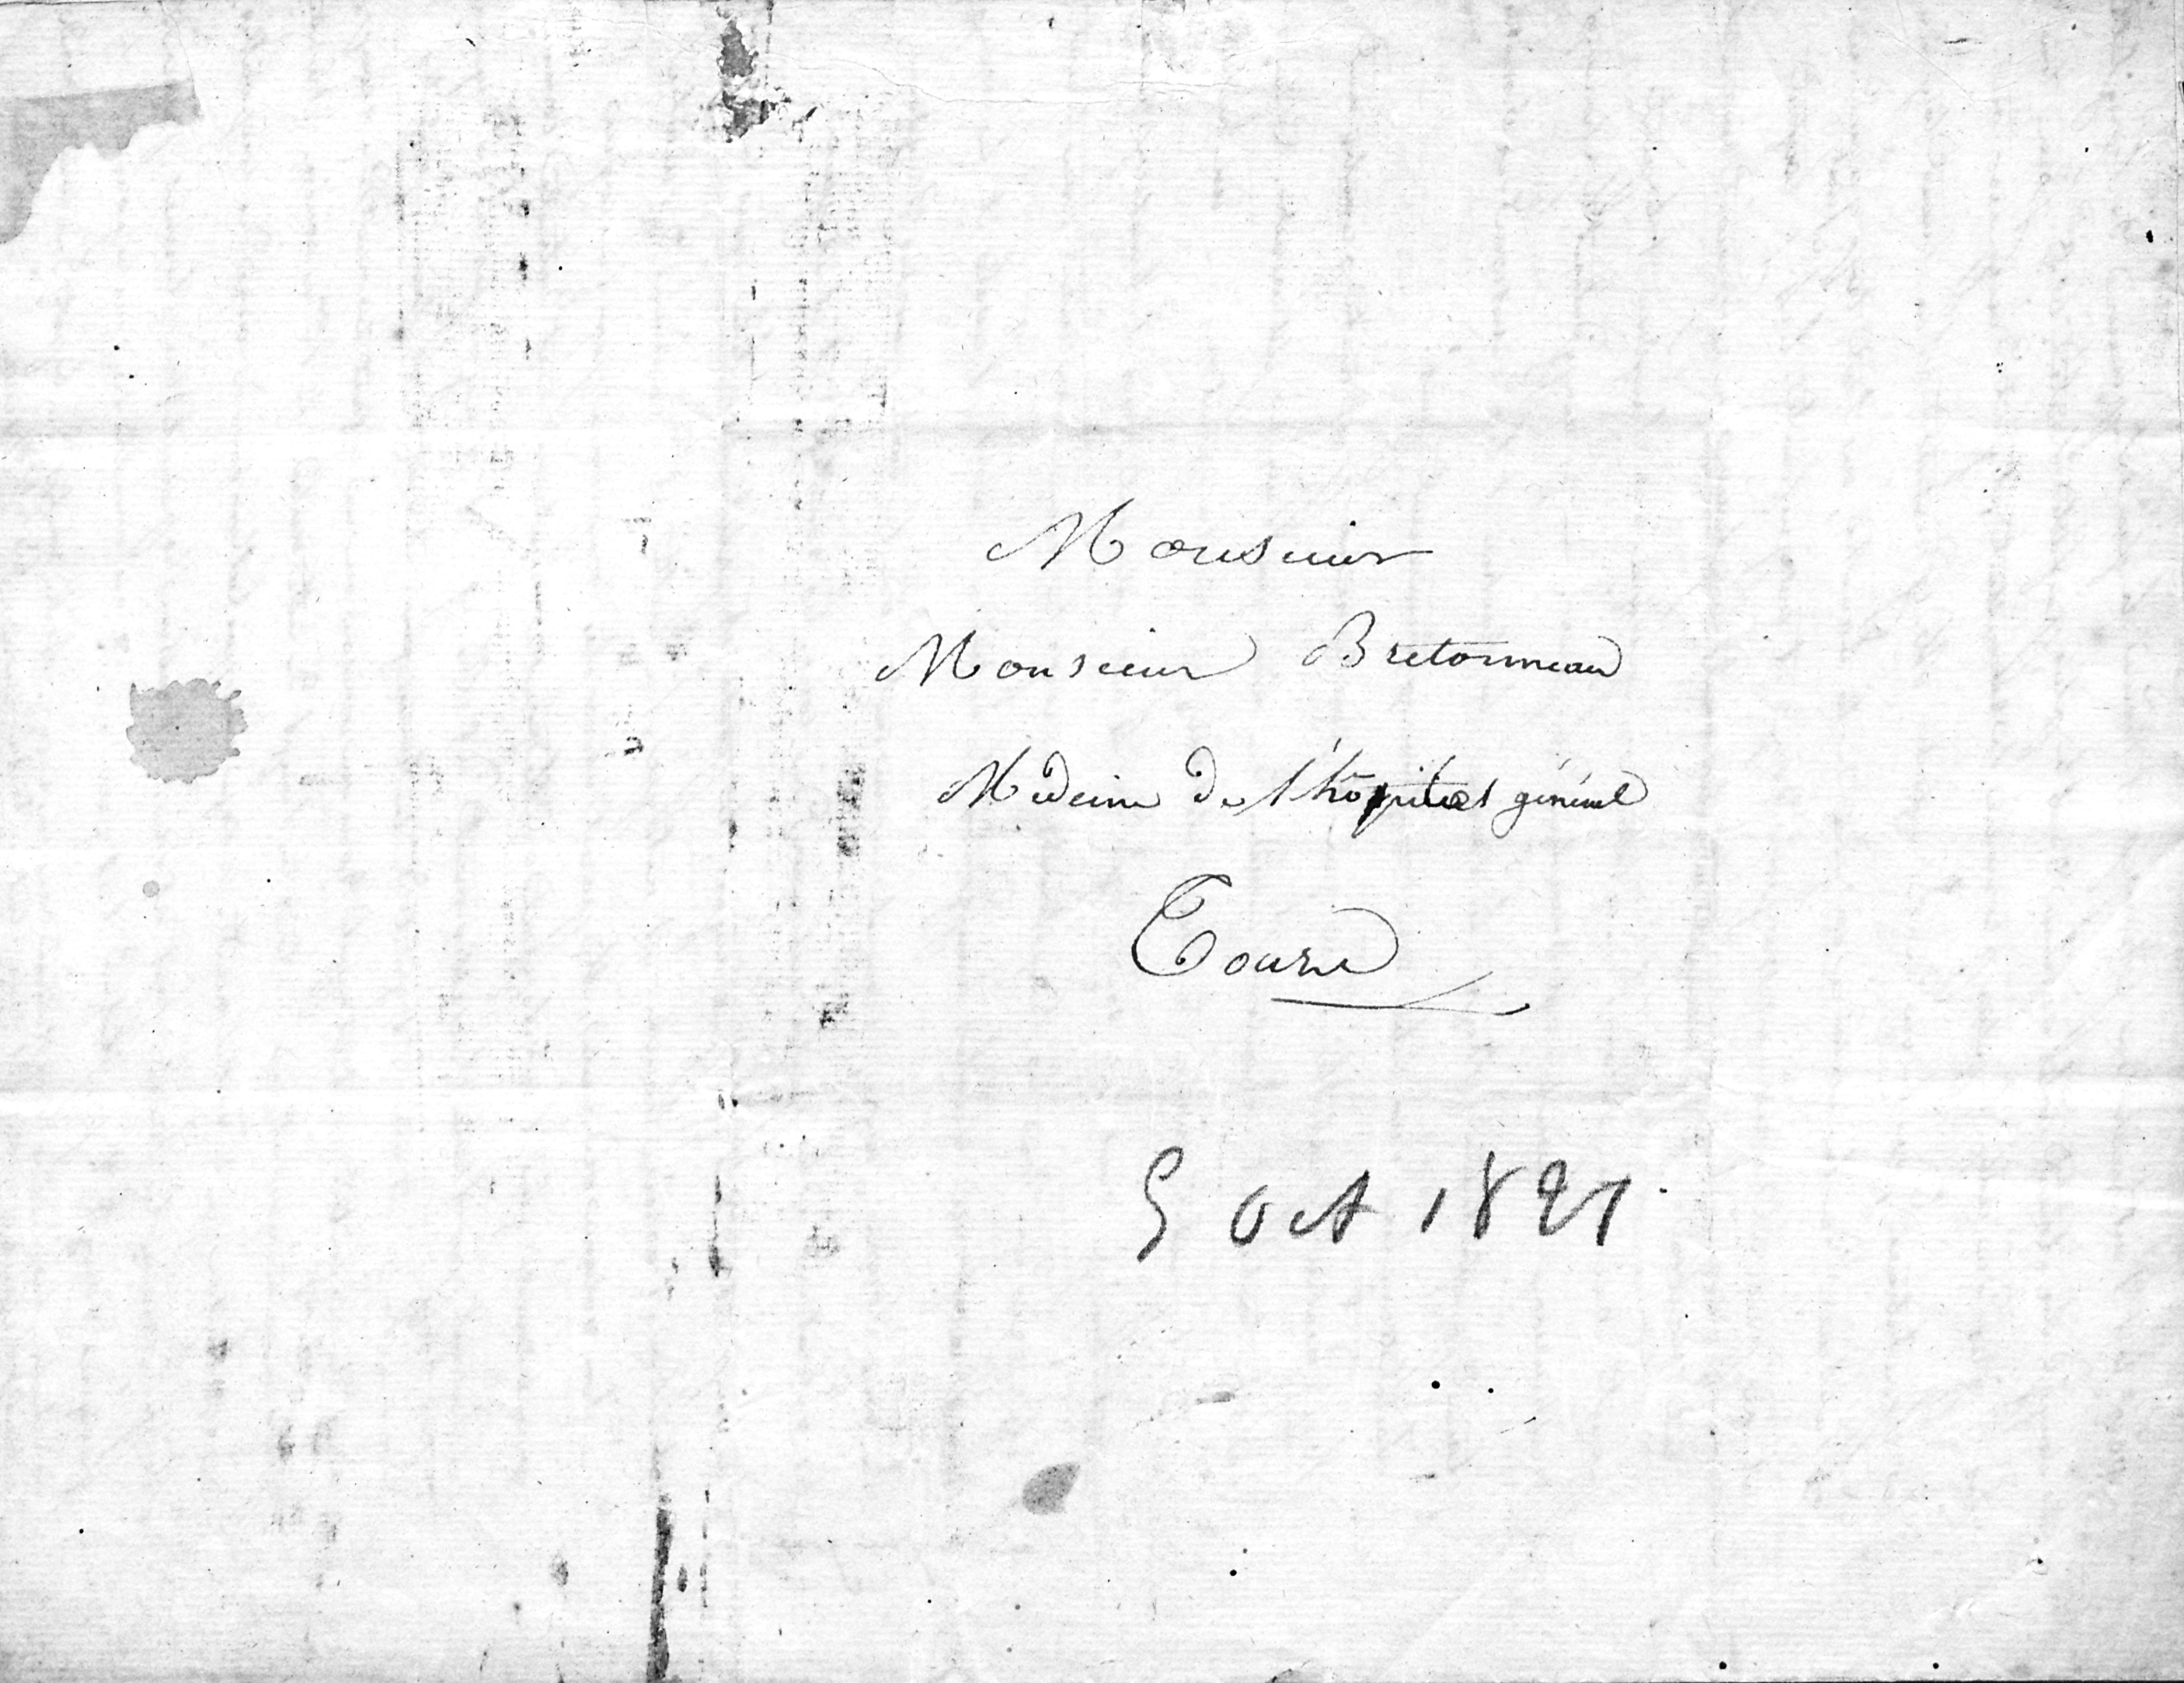 Monsieur
Monsieur Bretonneau
Médecin de l'hôpital général
Tours
5 oct 1821